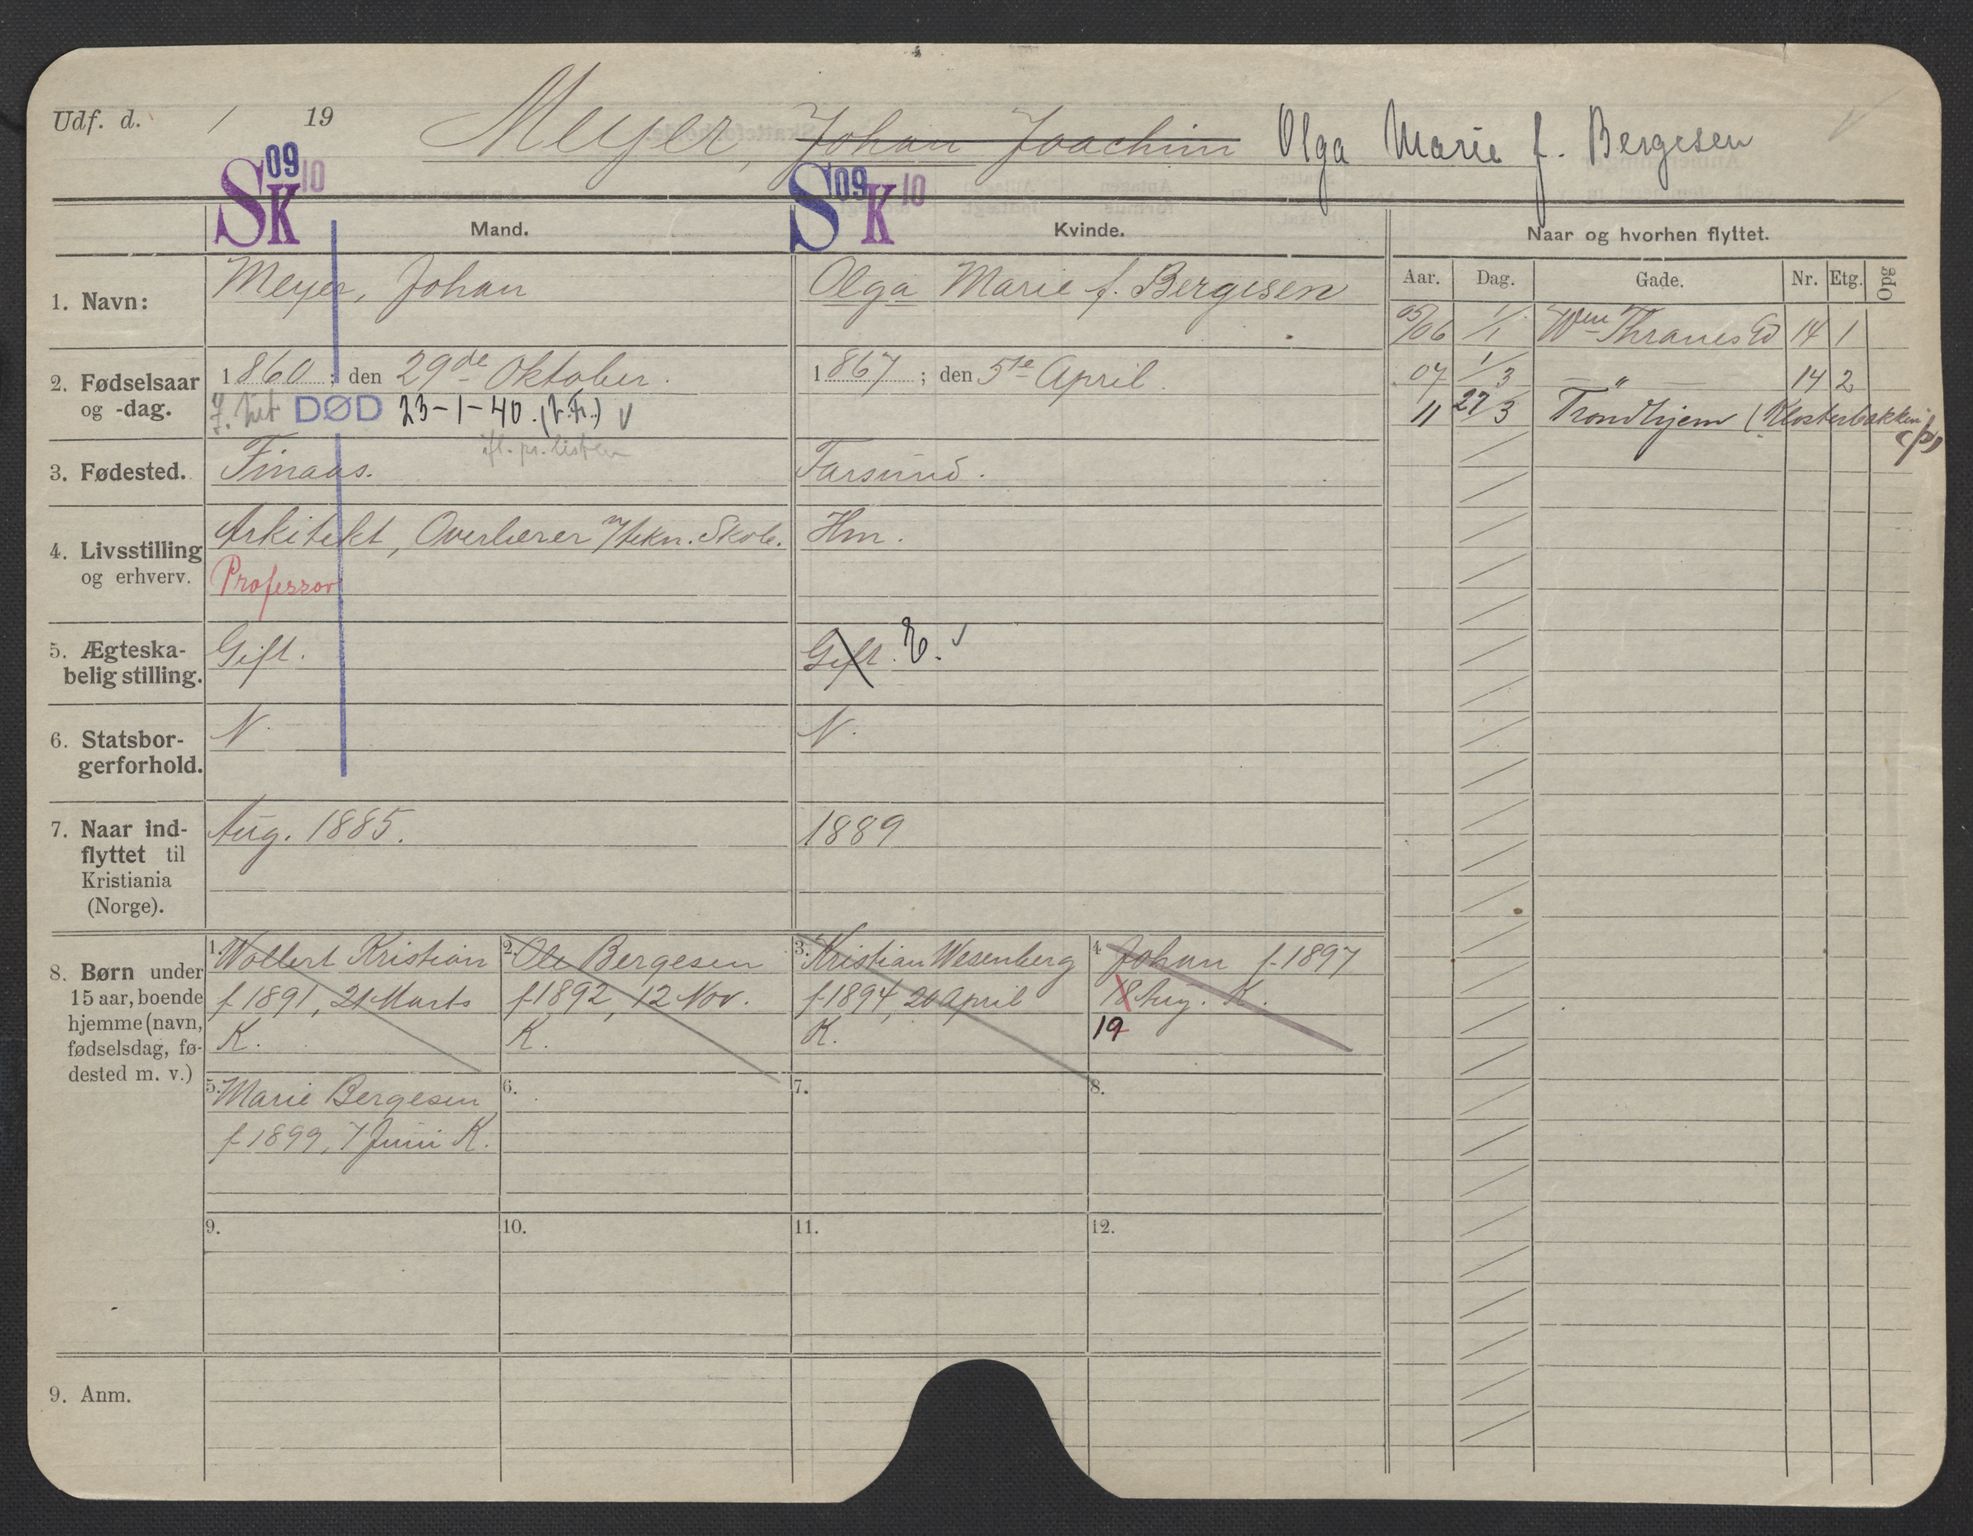 Udf. d. / 19
Meyer, Johan Joachim Olga Marie f. Bergesen
SK 09 10
SK 09 10
Mand.
Kvinde.
Naar og hvorhen flyttet.
Aar. Dag. Gade. Nr. Etg. Opg
1. Navn:
Meyer, Johan
Olga Marie f. Bergesen
05/06 1/1 Wm Thranes Gd 14 1
07 1/3 — " — 14 2
11 27/3 Trondhjem (Klosterbakken
2. Fødselsaar
og -dag.
1860; den 29de Oktober.
DØD 23-1-40. (v. Fr.) v
ifl. pr. listen
1867; den 5te April.
3. Fødested.
Finaas.
Farsund.
4. Livsstilling
og erhverv.
Arkitekt, Overlærer v/tekn. Skole.
Professor
Hm.
5. Ægteska-
belig stilling.
Gift.
Gift. E. v
6. Statsbor-
gerforhold.
N.
N.
7. Naar ind-
flyttet til
Kristiania
(Norge).
Aug. 1885.
1889
8. Børn under
15 aar, boende
hjemme (navn,
fødselsdag, fø-
dested m. v.)
1. Wollert Kristian
f 1891, 21 Marts
K.
2. Ole Bergesen
f 1892, 12 Nov.
K.
3. Kristian Wesenberg
f 1894, 20 April
K.
4. Johan f. 1897
18 Aug. K.
19
5. Marie Bergesen
f 1899, 7 Juni K.
6.
7.
8.
9.
10.
11.
12.
9. Anm.